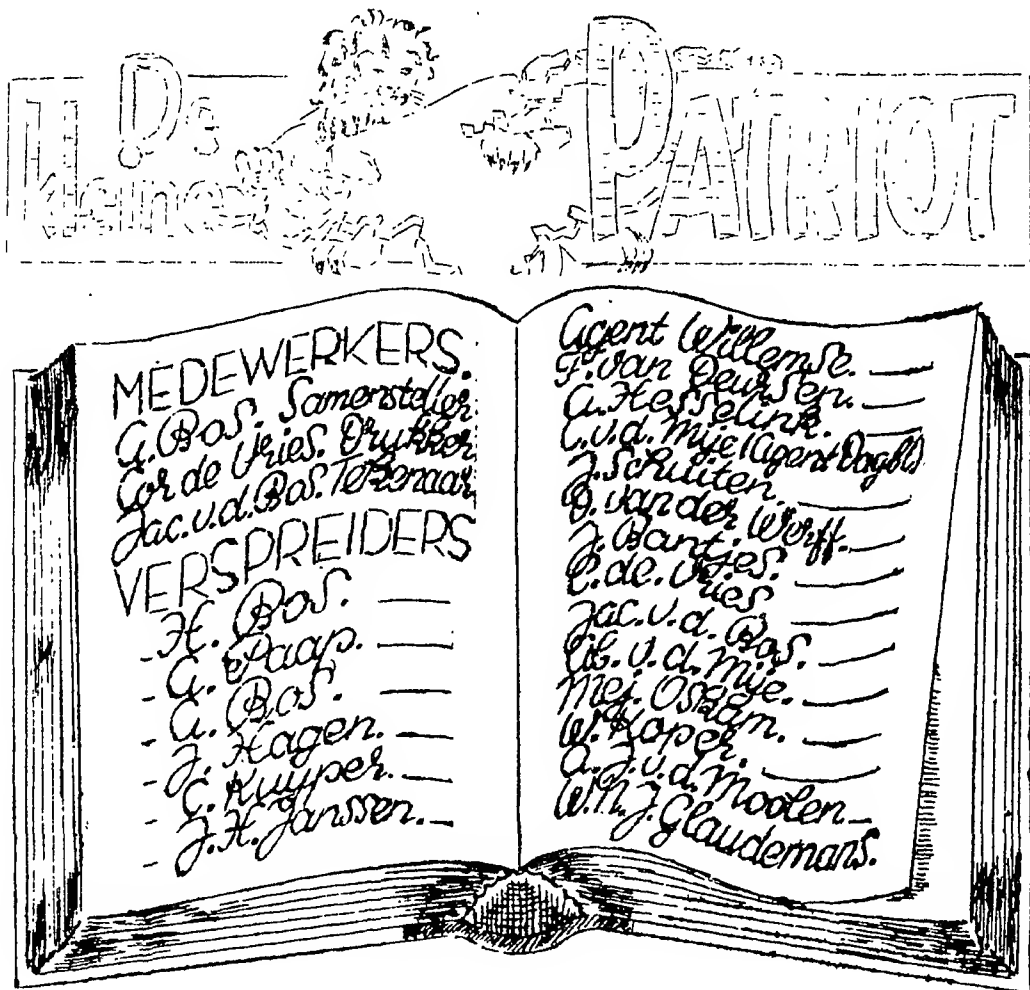 De
kleine PATRIOT
MEDEWERKERS.
G. Bos. Samensteller.
Cor de Vries. Drukker
Jac. v. d. Bos. Tekenaar.
VERSPREIDERS
- H. Bos. —
- G. Paap. —
- G. Bos. —
- J. Hagen. —
- C. Kuyper. —
- J. H. Janssen. —
Agent Willemse. —
F. van Deursen. —
A. Hesselink. —
C. v. d. Mije (Agent Dagbl)
J. Schuiten. —
D. van der Werff. —
J. Bantjes. —
C. de Vries —
Jac. v. d. Bos. —
Ab. v. d. Mije. —
Mej. Oskam. —
W. Koper. —
A. J. v. d. Moolen —
W. N. J. Glaudemans.